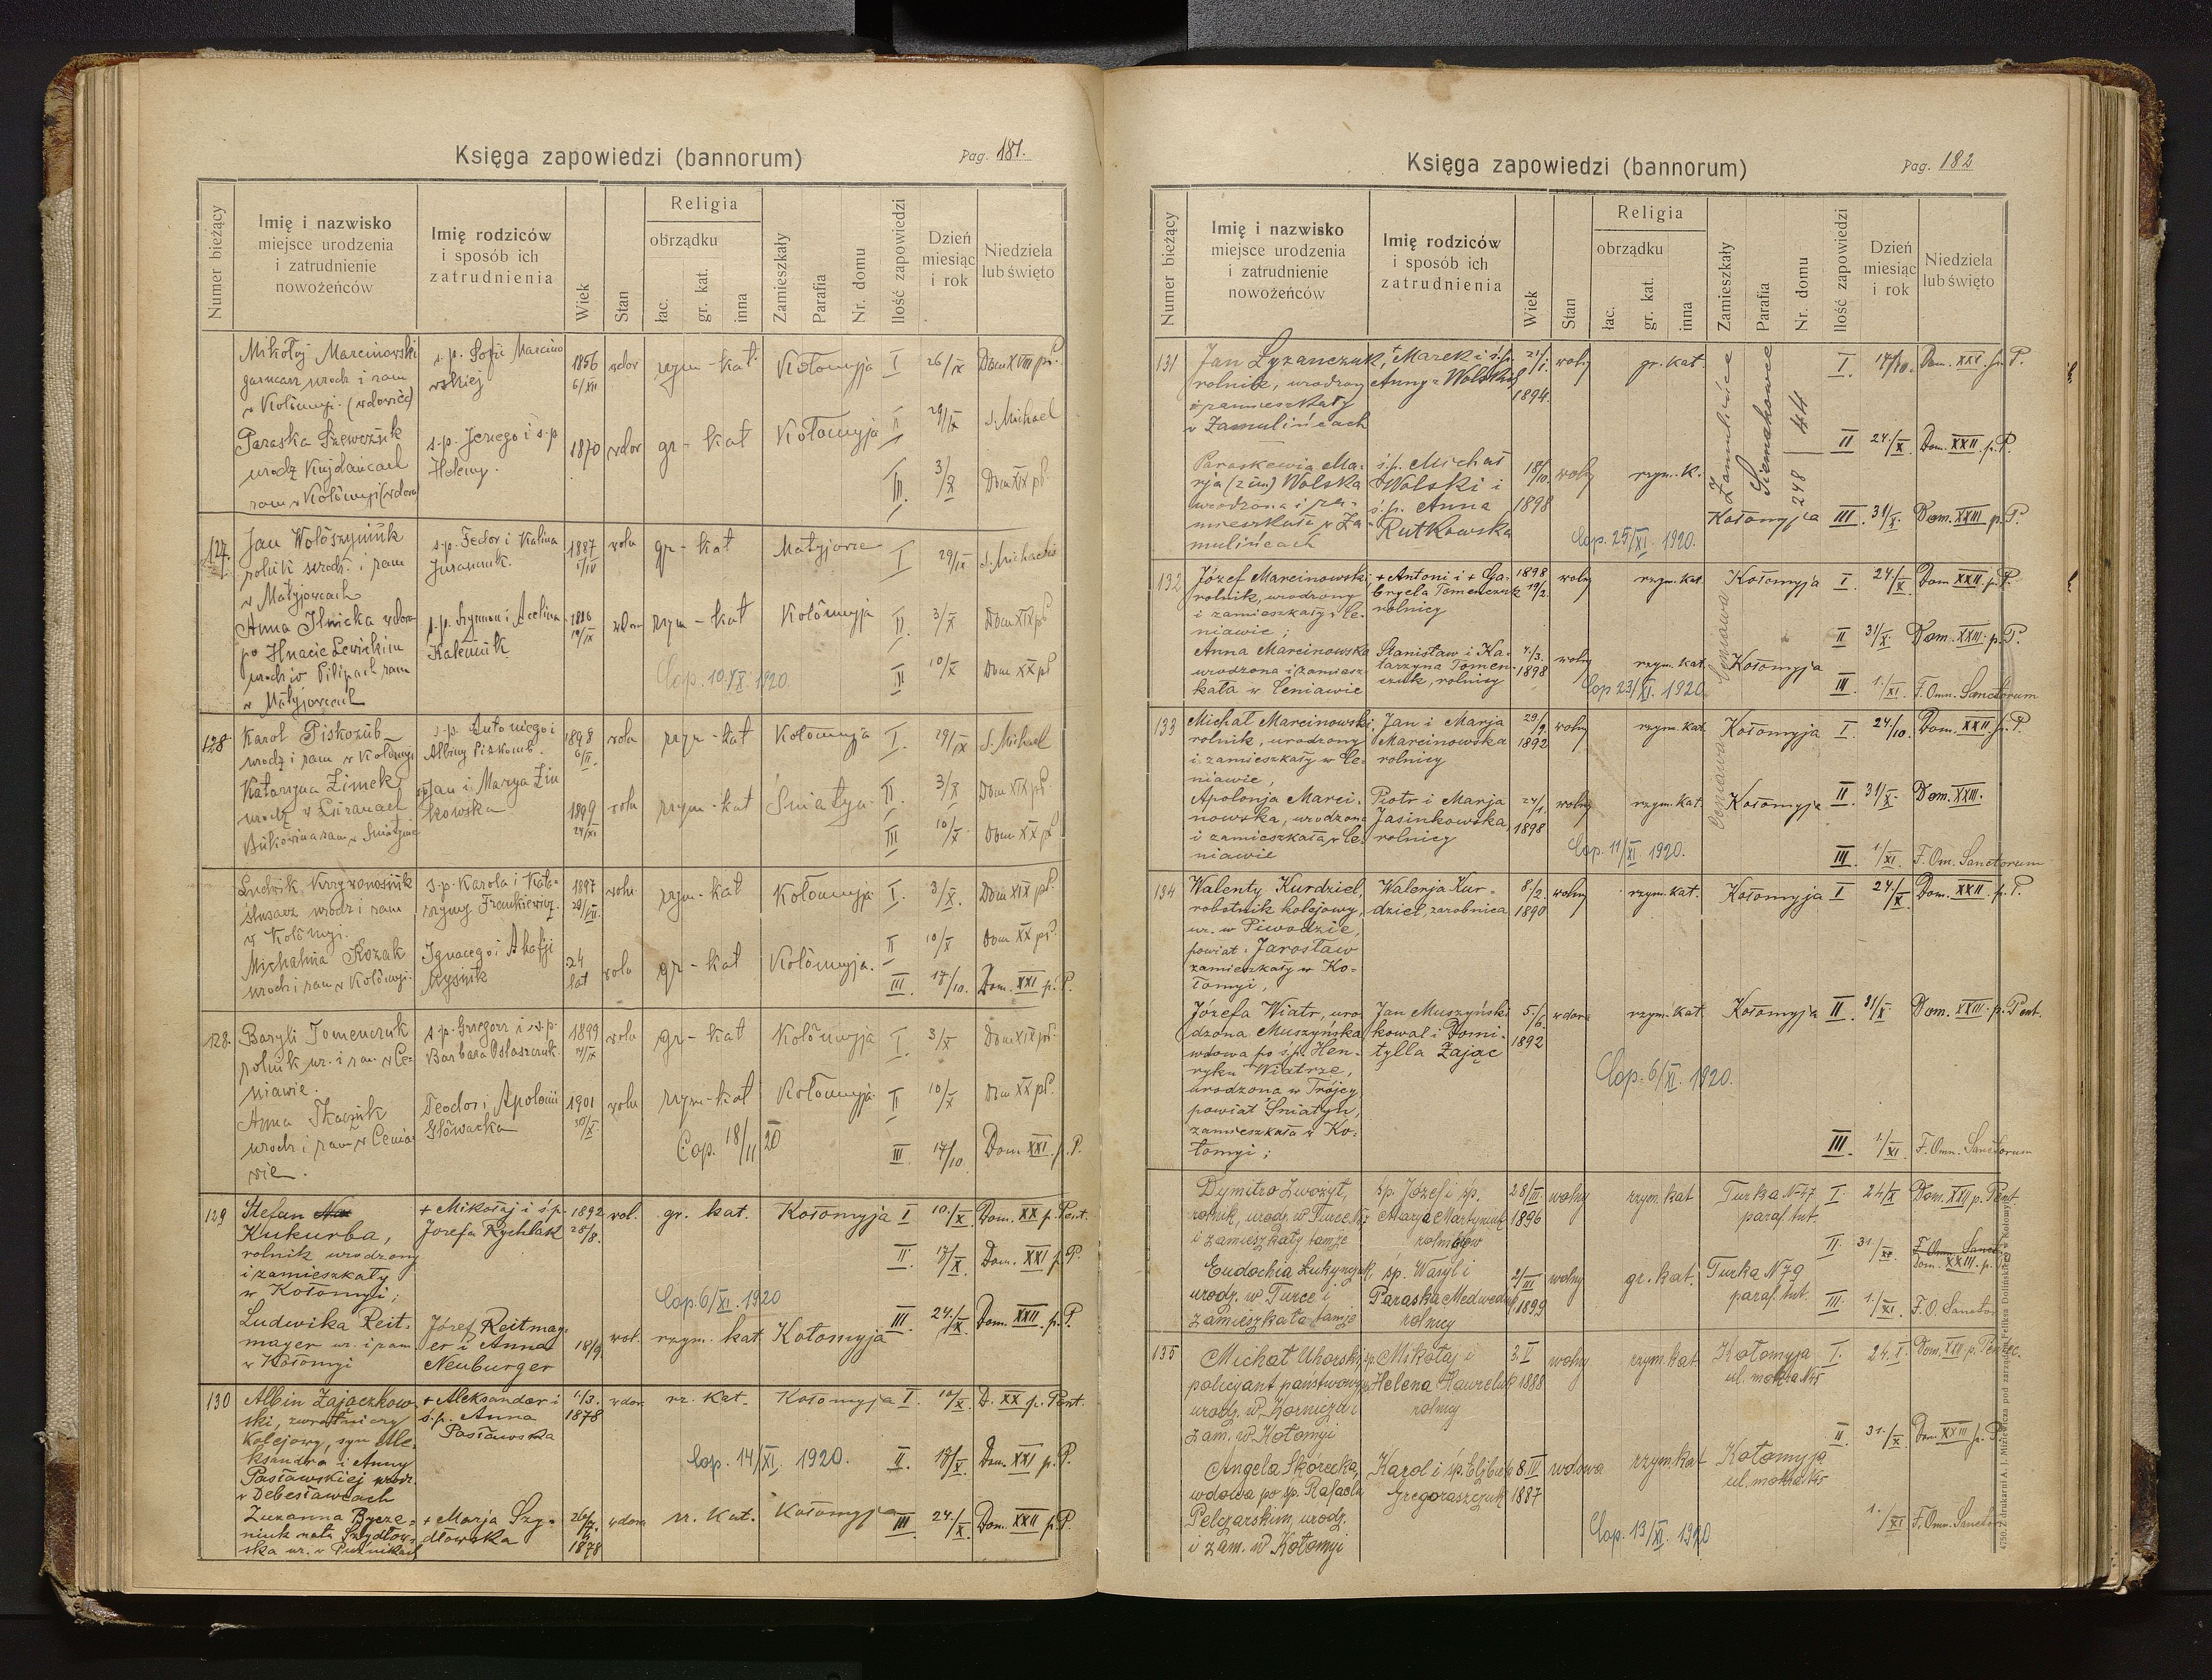 Księga zapowiedzi (bannorum)
Pag. 181.
Numer bieżący
Imię i nazwisko
miejsce urodzenia
i zatrudnienie
nowożeńców
Imię rodziców
i sposób ich
zatrudnienia
Wiek
Stan
Religia
obrządku
łac.
gr. kat.
inna
Zamieszkały
Parafia
Nr. domu
Ilość zapowiedzi
Dzień
miesiąc
i rok
Niedziela
lub święto
Mikołaj Marcinowski
garncarz urodz i zam
w Kołomyi (wdowiec)
s. p. Zofii Marcino
wskiej
1856
6/XII
wdow
rzym - kat
Kołomyja
I
26/IX
Dom XVIII pś.
Paraska Szewczuk
urodz Knjdańcach
zam w Kołomyi (wdowa)
s.p. Jerzego i s.p
Heleny.
1870
wdow
gr - kat
Kołomyja
II
29/IX
S. Michael
III.
3/X
Dom XIX pś.
127.
Jan Wołoszyniuk
rolnik urodz. i zam
w Matyjowcach
s.p. Fedor i Kalina
1887
woln
gr - kat
Matyjowce
I
29/IX
S. Michaelis
Anna Ilnicka wdowa
po Ihnacie Lewickim
urodz w Pilipach zam
w Matyjowcach
s.p. Szymon i Acelina
1886
wdow
rzym - kat
Kołomyja
II.
3/X
Dom XIX pś
Cop. 10/XI. 1920.
III
10/X
Dom XX pś
128
Karol Piskozub
urodz i zam w Kołomyi
s.p. Antoniego i
Albiny Piskozub.
1898
6/II.
woln
rzym - kat
Kołomyja
I.
29/IX
S. Michael
Katarzyna Zimek
Bukowina zam w Śniatynie
Jan i Marya Zin
kowska
1899
24/XI
woln
rzym - kat
Śniatyn.
II.
3/X
Dom XIX pś.
III
10/X.
Dom XX pś
Ludwik Krzywonosiuk
ślusarz urodz i zam
w Kołomyi.
s.p. Karola i Kata-
rzyny Frankiewicz.
1897
woln
rzym - kat
Kołomyja
I.
3/X.
Dom XIX pś.
Michalina Kozak
urodz i zam w Kołomyi.
Ignacego i
24
lat
woln
gr - kat
Kołomyja.
II
10/X
Dom XX pś.
III.
17/10.
Dom. XXI p. P.
128.
Bazyli Tomenczuk
rolnik ur. i zam w Ce-
niawie.
s.p. Grzegorz i s.p.
Barbara Ostaszczuk.
1899
woln
gr - kat
Kołomyja
I.
3/X
Dom XIX pś.
Anna Tkaczuk
urodz i zam w Cenia
wie.
Teodor i Apolonii
Głowacka
1901
30/X
woln
rzym - kat
Kołomyja
II
10/X
Dom XX pś.
Cop. 18/11 20
III
17/10
Dom. XXI. p. P.
129
Stefan
Kukurba,
rolnik urodzony
i zamieszkały
w Kołomyi;
+ Mikołaj i ś.p.
Jozefa Rychlak
1892
28/8.
wol.
gr. kat.
Kołomyja
I
10./X
Dom. XX p. Pent.
II.
17/X.
Dom. XXI p. P.
Cop. 6/XI. 1920
Ludwika Reit-
mayer ur. i zam
w Kołomyi
Józef Reitmay-
er i Anna
Neuburger
18/9
wol.
rzym. kat.
Kołomyja
III.
24./X.
Dom. XXII. p. P.
130
Albin Zajaczkow-
ski, zwrotniczy
kolejowy, syn Ale-
ksandra i Anny
Pasławskiej urodz.
w Debesławcach
+ Aleksander i
ś.p. Anna
Pasławska
1./3.
1878
wdow.
rz. kat.
Kołomyja
I.
10/X.
D. XX p. Pent.
Cop. 14/XI. 1920.
II.
17/X.
Dom. XXI p. P.
Zuzanna Bycze-
niuk nata Szydłow-
ska ur. w Puźnikach
+ Marja Szy-
dłowska
1878
wdowa
rz. kat.
Kołomyja
III
24./X.
Dom. XXII p. P.
Księga zapowiedzi (bannorum)
Pag. 182
Numer bieżący
Imię i nazwisko
miejsce urodzenia
i zatrudnienie
nowożeńców
Imię rodziców
i sposób ich
zatrudnienia
Wiek
Stan
Religia
obrządku
łac.
gr. kat.
inna
Zamieszkały
Parafia
Nr. domu
Ilość zapowiedzi
Dzień
miesiąc
i rok
Niedziela
lub święto
131
Jan Łyzanczuk,
rolnik, urodzony
i zamieszkały
w Zamulińcach
+ Marek i ś.p.
Anny z Wolskich
21/1.
1894.
wolny
gr. kat.
Zamulińce
Siemakowce
44
I.
17/10.
Dom. XXI. p. P.
II
24./X
Dom. XXII. p. P.
Paraskewia Ma-
rja (2 im) Wolska
urodzona i za-
mieszkała w Za-
mulińcach
ś.p. Michał
Wolski i
ś.p. Anna
Rutkowska
18/10.
1898
wolny
rzym. k.
248
Kołomyja
III.
31/X.
Dom. XXIII p. P.
Cop. 25/XI. 1920.
132
Józef Marcinowski
rolnik, urodzony
i zamieszkały w Ce-
niawie;
+ Antoni i + Ga-
bryela Tomenczuk
rolnicy
1898
19/2.
wolny
rzym. kat.
Kołomyja
I.
24./X
Dom XXII. p. P.
II
31/X.
Dom. XXIII. p. P.
Anna Marcinowska
urodzona i zamiesz-
kała w Ceniawie
Stanisław i Ka-
tarzyna Tomen-
czuk, rolnicy
4./3.
1898
wolny
rzym. kat.
Kołomyja
Cop 23/XI. 1920.
III.
1./XI.
F. Omn. Sanctorum
133
Michał Marcinowski
rolnik, urodzony
i zamieszkały w Ce-
niawie,
Jan i Marja
Marcinowska
rolnicy
29/9.
1892
wolny
rzym. kat.
Ceniawa
Kołomyja
I.
24./10.
Dom. XXII. p. P.
Apolonja Marci-
nowska, urodzona
i zamieszkała w Ce-
niawie
Piotr i Marja
Jasinkowska
rolnicy
24/1.
1898
wolny
rzym. kat.
Kołomyja
II
31/X.
Dom. XXIII.
Cop. 11/XI. 1920.
III.
1/XI.
F. Om. Sanctorum
134
Walenty Kurdziel,
robotnik kolejowy,
ur. w Piwodzie,
powiat: Jarosław
zamieszkały w Ko-
łomyi,
Walerja Kur-
dziel, zarobnica
8./2.
1890
wolny
rzym. kat.
Kołomyja
I
24./X
Dom. XXII. p. P.
Józefa Wiatr, uro-
dzona Muszyńska
wdowa po ś.p. Hen-
ryku Wiatrze,
urodzona w Trójcy,
powiat Śniatyn,
zamieszkała w Ko-
łomyi;
Jan Muszyński
kowal i Domi-
tylla Zając
5./6.
1892
wdowa
rzym. kat.
Kołomyja
II.
31/X.
Dom. XXIII. p. Pent.
Cop. 6/XI. 1920.
III.
1./XI.
F. Omn. Sanctorum
Dymitro Zwożyt,
rolnik, urodz. w Turce
i zamieszkały tamże
śp. Józef i śp.
Marya Martyniuk
rolników
28/III.
1896
wolny
rzym. kat
Turka N-47
paraf. tut.
I.
24/X
Dom. XXII p. Pent
II.
31./X.
F. Omn. Sanct.
Dom. XXIII. p.
Eudochia Łukynczuk,
urodz. w Turce i
zamieszkała tamże
śp. Wasyl i
Paraska Medweduk
rolnicy
2/III
1899
wolny
gr. kat.
Turka N 79
paraf. tut.
III.
1./XI.
F. O Sanctor
135
Michał Uhorski,
policyant państwowy,
urodz. w Kornicza i
zam. w Kołomyi
śp. Mikołaj i
Helena Hawreluk
rolnicy
3. V
1888
wolny
rzym. kat
Kołomyja
ul. mokra N45
I.
24. X.
Dom. XXII p. Pentec.
II.
31./X.
Dom XXIII p. P.
Angela Skórecka,
wdowa po śp. Rafaelu
Pelczarskim, urodz.
i zam. w Kołomyi
Karol i śp. Elżbieta
Gregoraszczuk
8. III
1887
wdowa
rzym. kat
Kołomyja
ul. mokra N45
Cop. 13/XI. 1920
1./XI
F. Omn. Sanctor